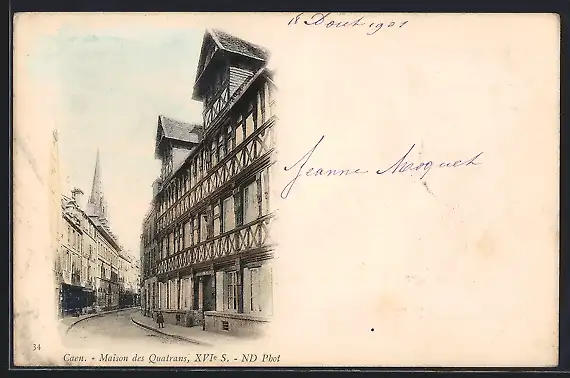 8 Août 1901
Jeanne Moquet
34
Caen. - Maison des Quatrans, XVIe S. - ND Phot